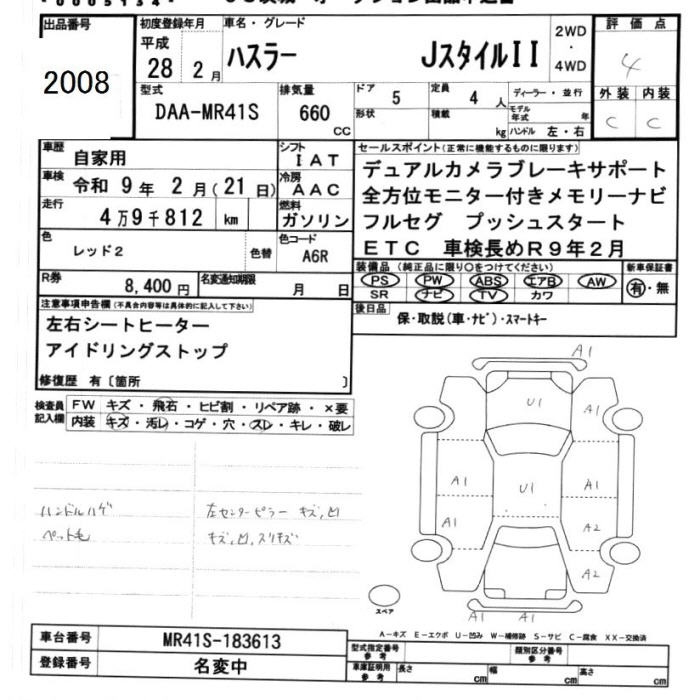 出品番号
2008
初度登録年月
平成
28 年 2 月
車名・グレード
ハスラー JスタイルII
2WD
・
4WD
評価点
4
外装 内装
C C
型式
DAA-MR41S
排気量
660
CC
ドア
5
形状
定員
4 人
積載
kg
ディーラー・並行
モデル年式 年
ハンドル 左・右
車歴
自家用
シフト
IAT
車検
令和 9年 2月(21日)
冷房
AAC
走行
4万9千812 km
燃料
ガソリン
色
レッド2
色替
色コード
A6R
R券
8,400円
名変通知期限
月 日
セールスポイント(正常に機能するものに限ります)
デュアルカメラブレーキサポート
全方位モニター付きメモリーナビ
フルセグ プッシュスタート
ETC 車検長めR9年2月
装備品(純正品に限り○をつけてください)
PS PW ABS エアB AW
SR ナビ TV カワ
新車保証書
有・無
後日品
保・取説(車・ナビ)・スマートキー
注意事項申告欄(不具合内容等は具体的に記入して下さい)
左右シートヒーター
アイドリングストップ
修復歴 有〔箇所 〕
検査員
記入欄
FW キズ・飛石・ヒビ割・リペア跡・×要
内装 キズ・汚レ・コゲ・穴・スレ・キレ・破レ
ハンドルハゲ
ペット毛
左センターピラー キズ,凹
キズ,凹,スリキズ
A1
U1
A1
A1
A1
A1
U1
A2
A2
A1
スペア
A-キズ E-エクボ U-凹み W-補修跡 S-サビ C-腐食 XX-交換済
車台番号
MR41S-183613
登録番号
名変中
型式指定番号
参考
類別区分番号
参考
車庫証明用
参考
長さ cm
幅 cm
高さ cm